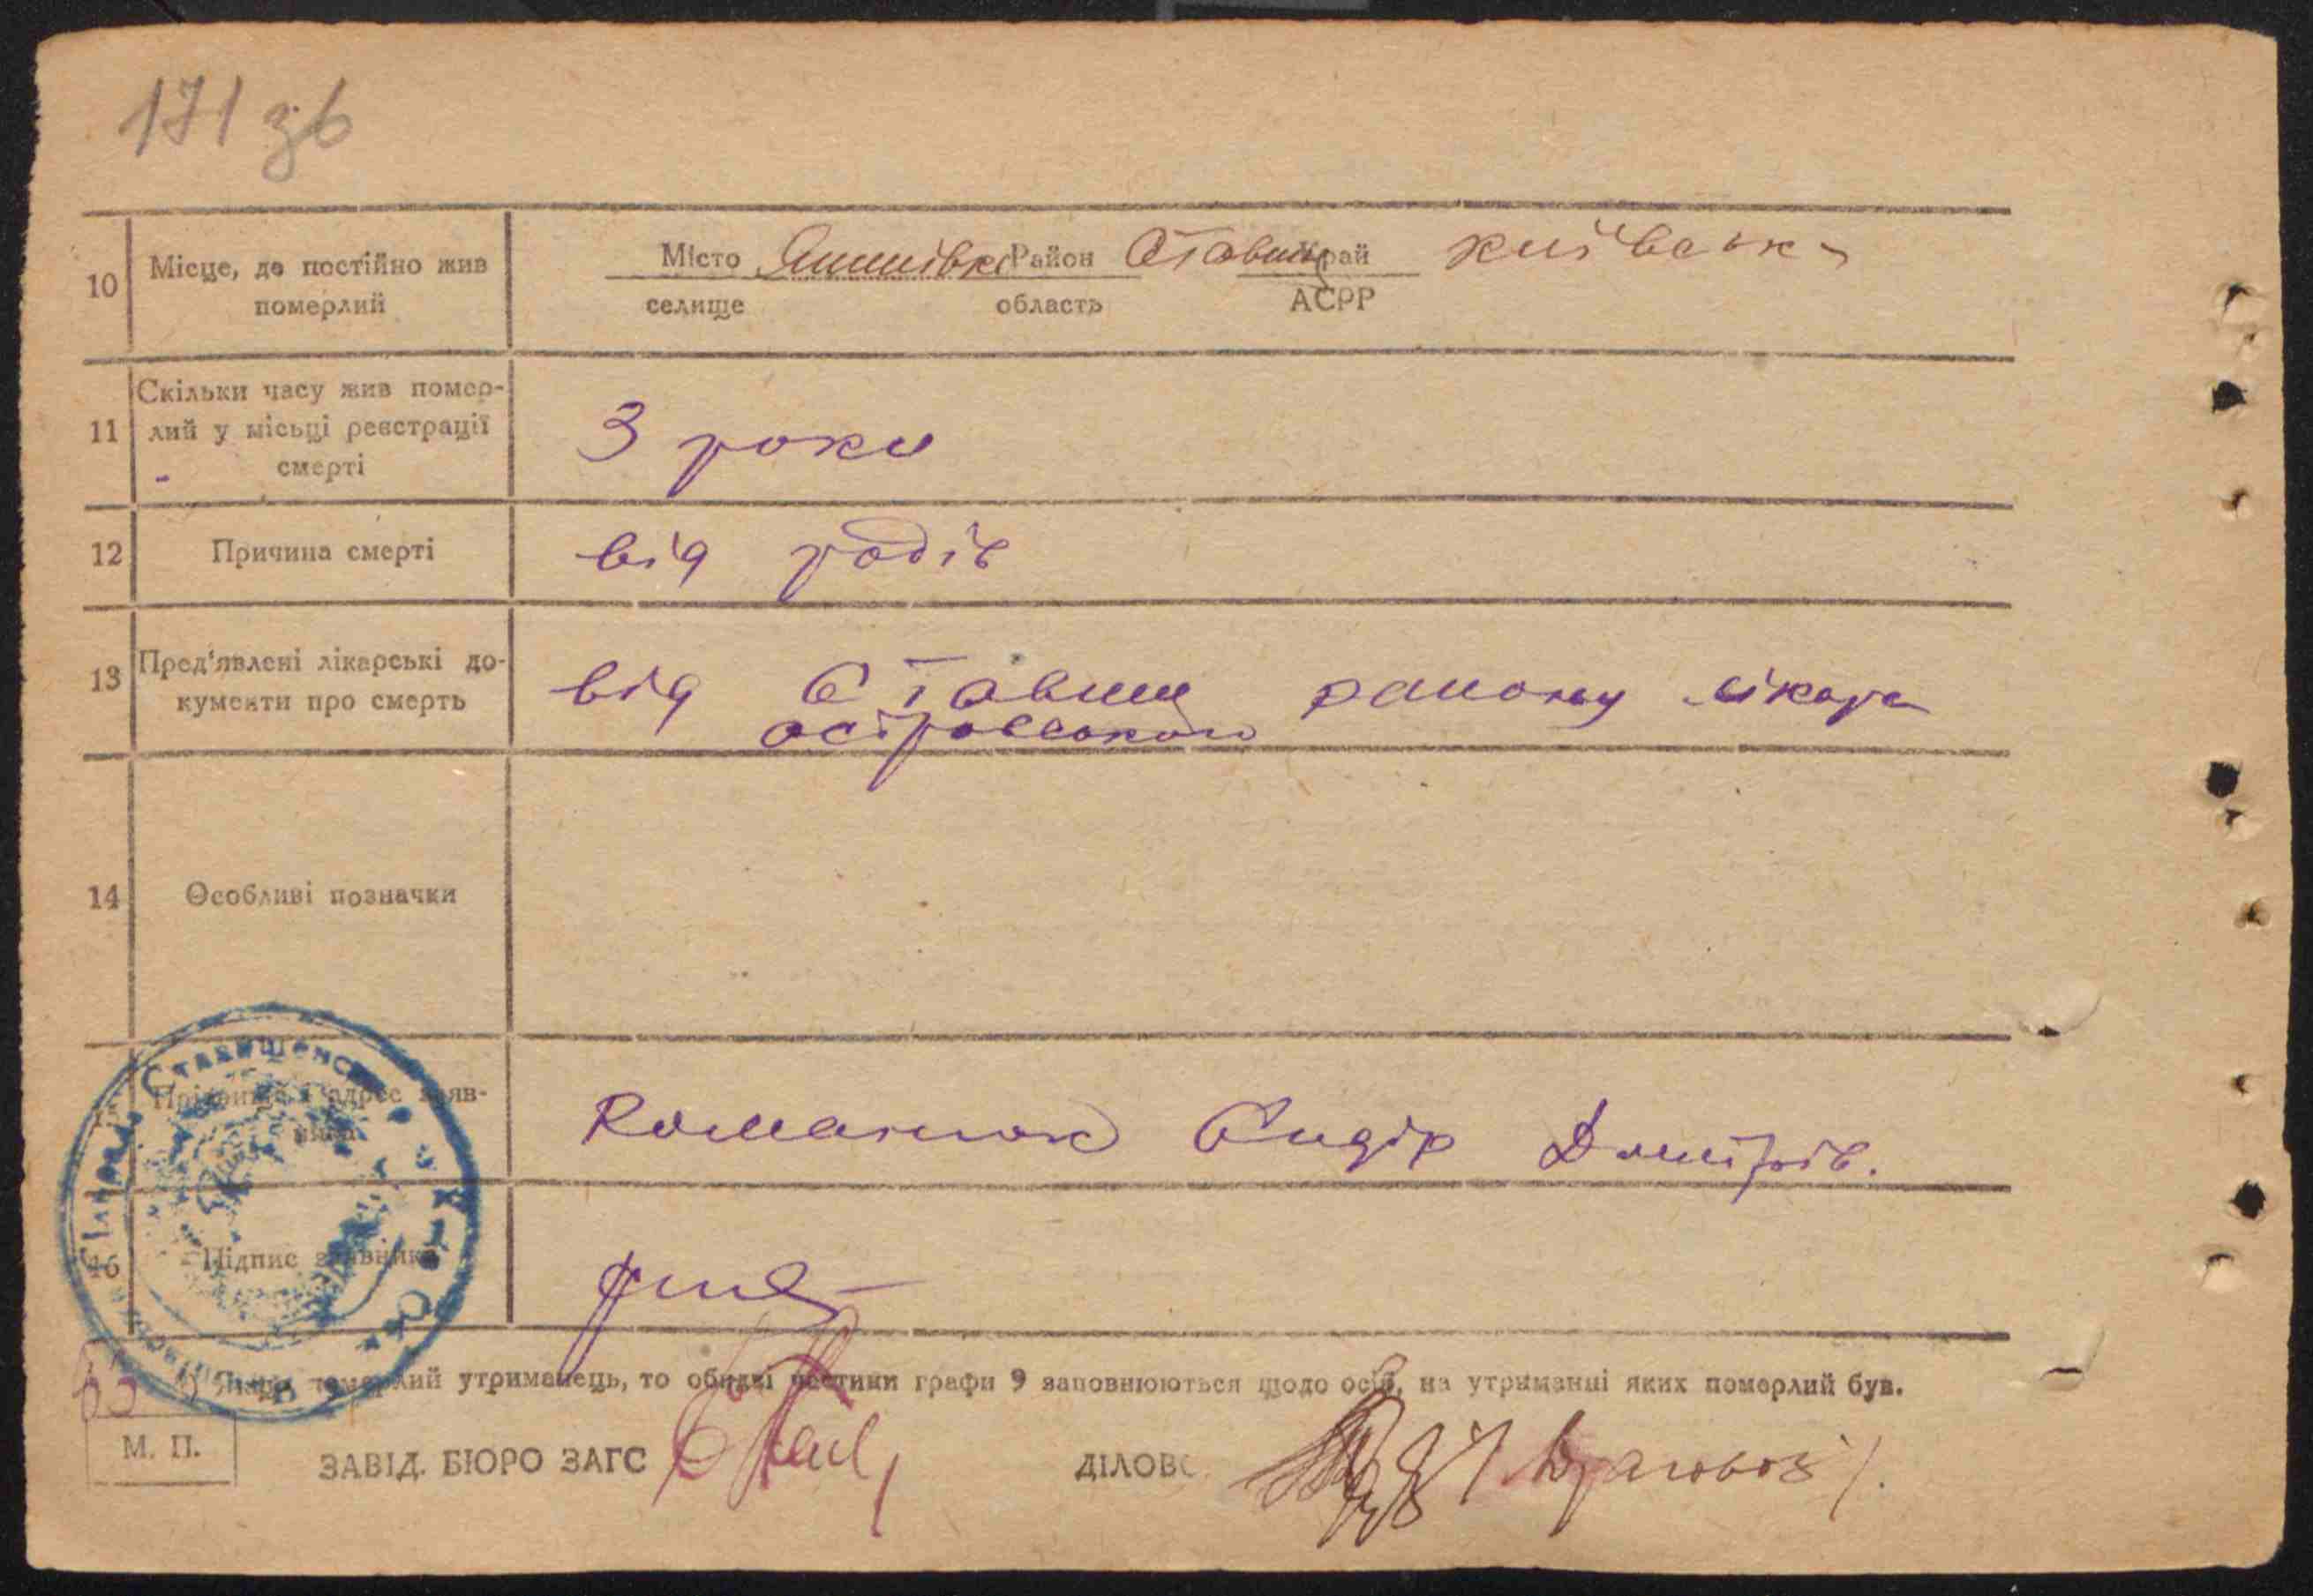 171 зв
10 Місце, де постійно жив померлий
Місто Район Ставищ Край київськ
селище область АСРР
11 Скільки часу жив помер-
лий у місьці реєстрації
смерті
3 роки
12 Причина смерті від родів
13 Пред'явлені лікарські до-
кументи про смерть
від Ставищ району лікаря
островського
14 Особливі позначки
адрес заяв-
Романюк Сидір Дмитрів.
16 Підпис заявника
померлий утриманець, то обидві частини графи 9 заповнюються щодо осіб, на утриманні яких померлий був.
М. П.
ЗАВІД. БЮРО ЗАГС ДІЛОВ